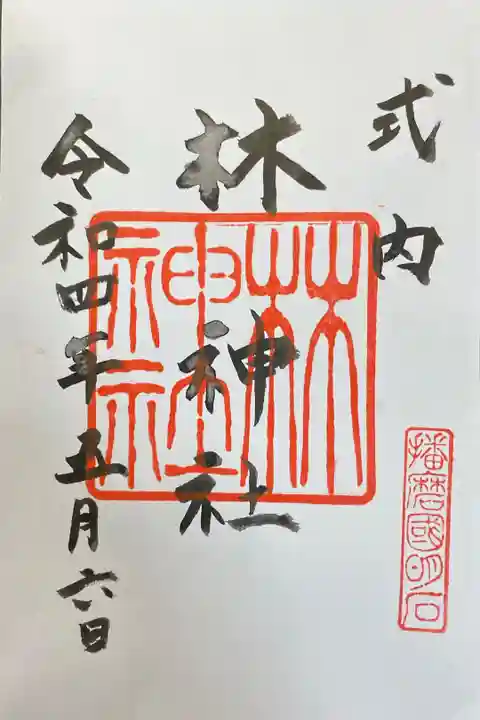 式内
播磨國明石
林神社
林神社
令和四年五月六日